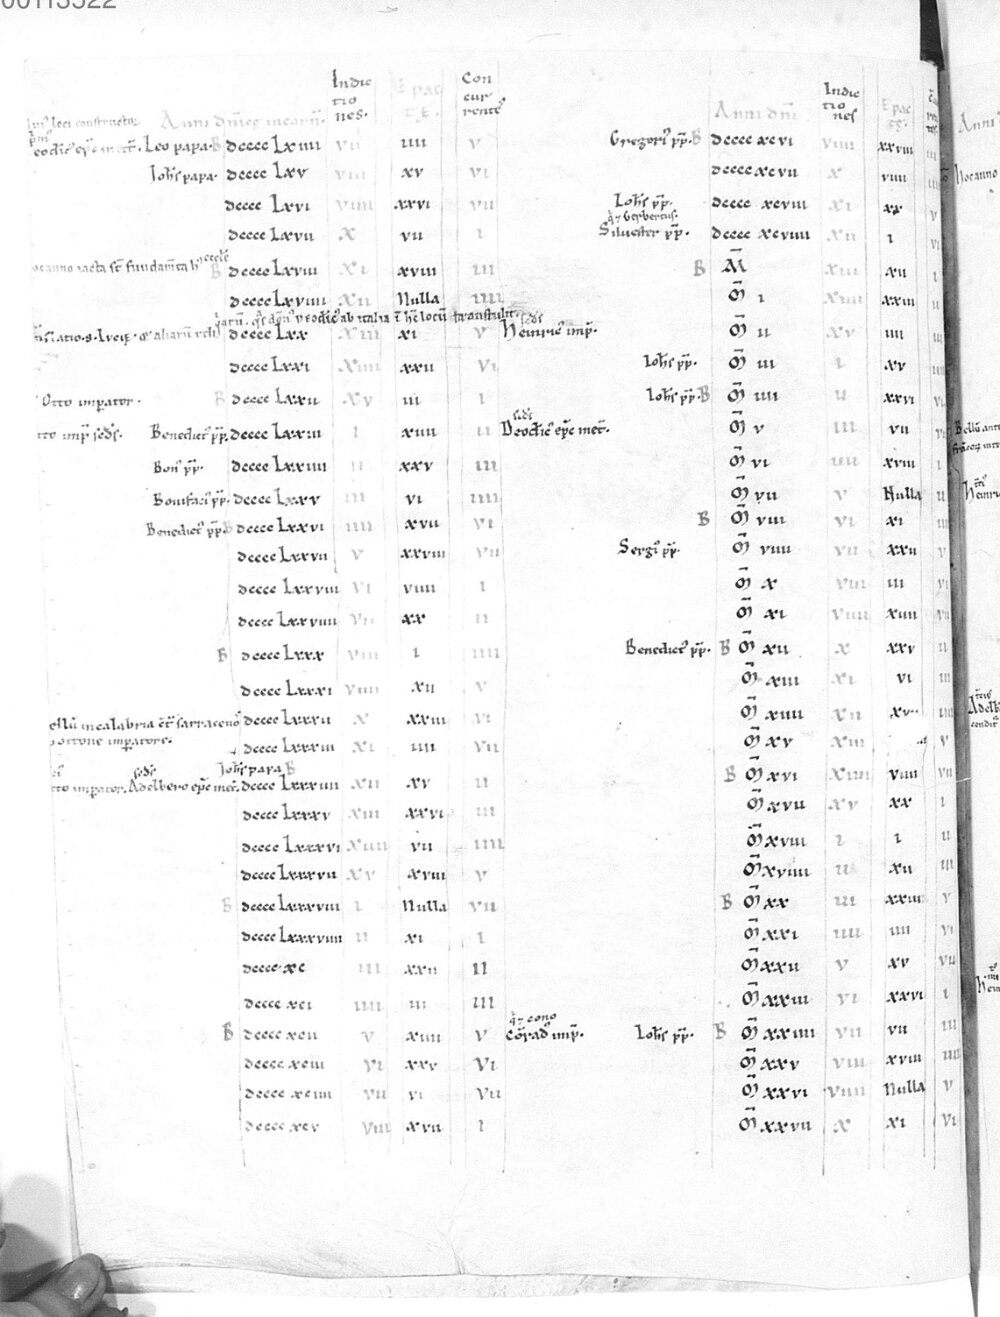 00113522
Indic tio nes. Epac tę. Con cur rentes
loci constructor Anni dñicę incarñ.
eodic' epc' mett. Leo papa. B dcccc Lxiiii vii iiii v
Johs papa. dcccc Lxv viii xv vi
dcccc Lxvi viiii xxvi vii
dcccc Lxvii x vii i
oc anno iacta st fundamta hui' eccle B dcccc Lxviii xi xviii iii
dcccc Lxviiii xii Nulla iiii
deodic' ab italia i hc locu transtulit.
dcccc Lxx xiii xi v
dcccc Lxxi xiiii xxii vi
Otto imperator. B dcccc Lxxii xv iii i
tto imp sedit. Benedict' pp. dcccc Lxxiii i xiiii ii
Bon' pp. dcccc Lxxiiii ii xxv iii
Bonifaci' pp. dcccc Lxxv iii vi iiii
Benedict' pp. B dcccc Lxxvi iiii xvii vi
dcccc Lxxvii v xxviii vii
dcccc Lxxviii vi viiii i
dcccc Lxxviiii vii xx ii
B dcccc Lxxx viii i iiii
dcccc Lxxxi viiii xii v
ellu in calabria ct sarracenos dcccc Lxxxii x xxiii vi
ottone imperatore. dcccc Lxxxiii xi iiii vii
Johs papa B
tto imperator. Adelbero epc met. dcccc Lxxxiiii xii xv ii
dcccc Lxxxv xiii xxvi iii
dcccc Lxxxvi xiiii vii iiii
dcccc Lxxxvii xv xviii v
B dcccc Lxxxviii i Nulla vii
dcccc Lxxxviiii ii xi i
dcccc xc iii xxii ii
dcccc xci iiii iii iii
B dcccc xcii v xiiii v
dcccc xciii vi xxv vi
dcccc xciiii vii vi vii
dcccc xcv viii xvii i
Anni dñi Indic tio nes Epac tę.
Gregori' pp. B dcccc xcvi viiii xxviii iii
dcccc xcvii x viiii iiii
Johs pp. dcccc xcviii xi xx v
q' 7 Gerbertus.
Siluester pp. dcccc xcviiii xii i vi
B M̄ xiii xii i
M̄ i xiiii xxiii ii
sedit
Heinric' imp. M̄ ii xv iiii iii
Johs pp. M̄ iii i xv iiii
Johs pp. B M̄ iiii ii xxvi vi
sedit
Deodic' epc mett. M̄ v iii vii vii
M̄ vi iiii xviii i
M̄ vii v Nulla ii
B M̄ viii vi xi
Sergi' pp. M̄ viiii vii xxii v
M̄ x viii iii vi
M̄ xi viiii xiiii vii
Benedict' pp. B M̄ xii x xxv ii
M̄ xiii xi vi iii
M̄ xiiii xii iiii
M̄ xv xiii v
B M̄ xvi xiiii viiii vii
M̄ xvii xv xx i
M̄ xviii i i ii
M̄ xviiii ii xii iii
B M̄ xx iii xxiii v
M̄ xxi iiii iiii vi
M̄ xxii v xv vii
M̄ xxiii vi xxvi i
q' 7 cono
Conrad' imp. Johs pp. B M̄ xxiiii vii vii iii
M̄ xxv viii xviii iiii
M̄ xxvi viiii Nulla v
M̄ xxvii x xi vi
Anni
hoc anno
Bellu
Heinric
Adelb